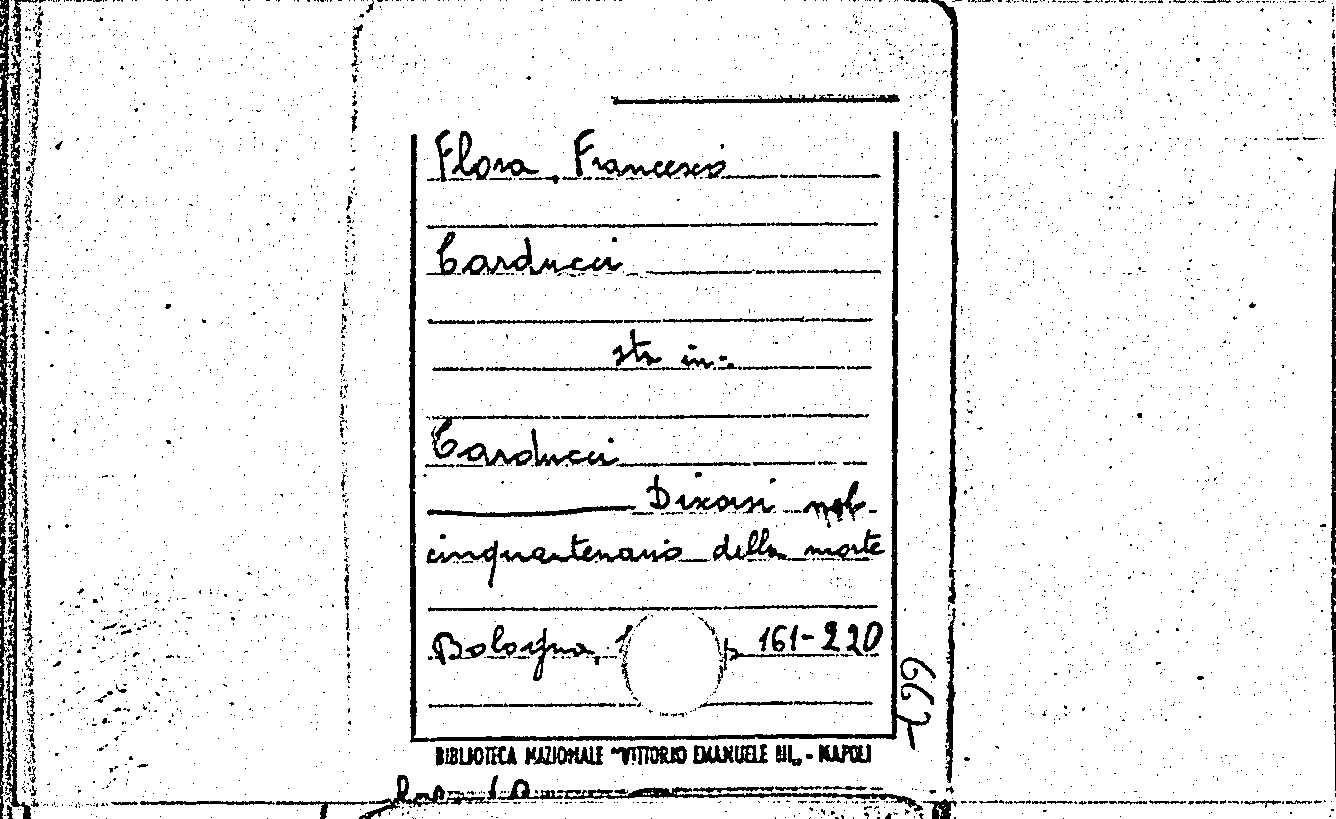 Flora, Francesco
Carducci
sta in:
Carducci
Discorsi nel
cinquantenario della morte
Bologna, 1 p. 161-220
BIBLIOTECA NAZIONALE "VITTORIO EMANUELE III„ - NAPOLI